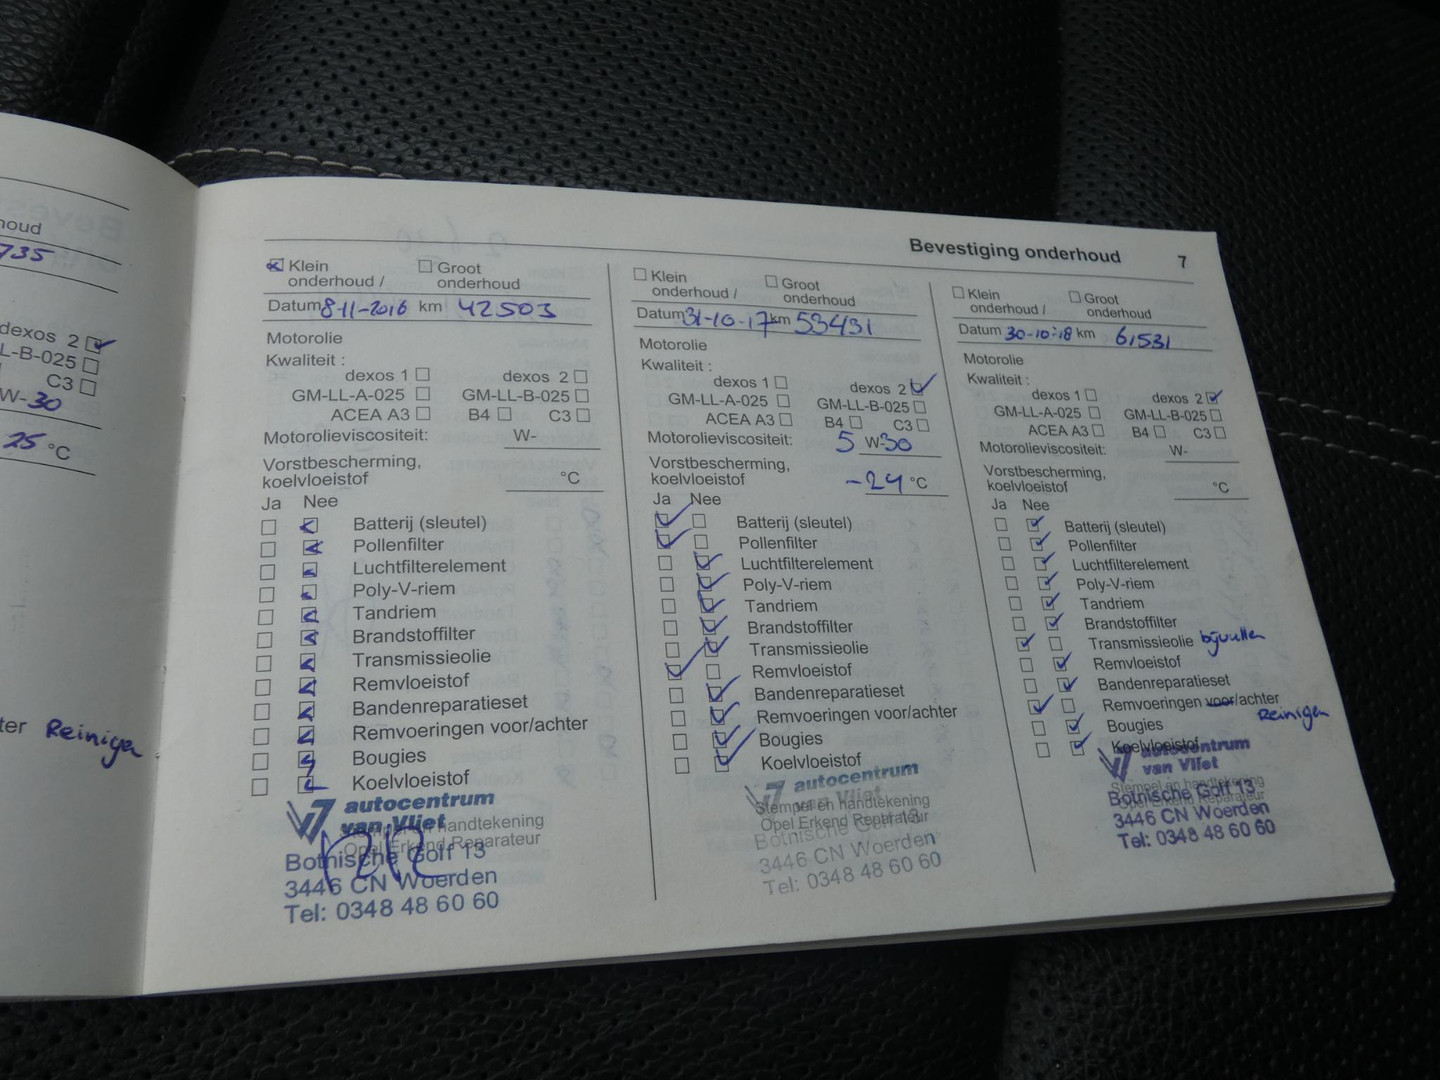 houd
735
dexos 2
LL-B-025
C3
W-30
25 °C
ter Reinigen
Bevestiging onderhoud 7
Klein onderhoud / Groot onderhoud
Datum 8-11-2016 km 42503
Motorolie
Kwaliteit :
dexos 1 dexos 2
GM-LL-A-025 GM-LL-B-025
ACEA A3 B4 C3
Motorolieviscositeit: W-
Vorstbescherming,
koelvloeistof °C
Ja Nee
Batterij (sleutel)
Pollenfilter
Luchtfilterelement
Poly-V-riem
Tandriem
Brandstoffilter
Transmissieolie
Remvloeistof
Bandenreparatieset
Remvoeringen voor/achter
Bougies
Koelvloeistof
autocentrum
van Vliet
Stempel en handtekening
Opel Erkend Reparateur
Botnische Golf 13
3446 CN Woerden
Tel: 0348 48 60 60
Klein onderhoud / Groot onderhoud
Datum 31-10-17 km 53431
Motorolie
Kwaliteit :
dexos 1 dexos 2
GM-LL-A-025 GM-LL-B-025
ACEA A3 B4 C3
Motorolieviscositeit: 5 W-30
Vorstbescherming,
koelvloeistof -24 °C
Ja Nee
Batterij (sleutel)
Pollenfilter
Luchtfilterelement
Poly-V-riem
Tandriem
Brandstoffilter
Transmissieolie
Remvloeistof
Bandenreparatieset
Remvoeringen voor/achter
Bougies
Koelvloeistof
autocentrum
van Vliet
Stempel en handtekening
Opel Erkend Reparateur
Botnische Golf 13
3446 CN Woerden
Tel: 0348 48 60 60
Klein onderhoud / Groot onderhoud
Datum 30-10-18 km 61531
Motorolie
Kwaliteit :
dexos 1 dexos 2
GM-LL-A-025 GM-LL-B-025
ACEA A3 B4 C3
Motorolieviscositeit: W-
Vorstbescherming,
koelvloeistof °C
Ja Nee
Batterij (sleutel)
Pollenfilter
Luchtfilterelement
Poly-V-riem
Tandriem
Brandstoffilter
Transmissieolie bijvullen
Remvloeistof
Bandenreparatieset
Remvoeringen voor/achter
Reinigen
Bougies
Koelvloeistof
autocentrum
van Vliet
Stempel en handtekening
Opel Erkend Reparateur
Botnische Golf 13
3446 CN Woerden
Tel: 0348 48 60 60